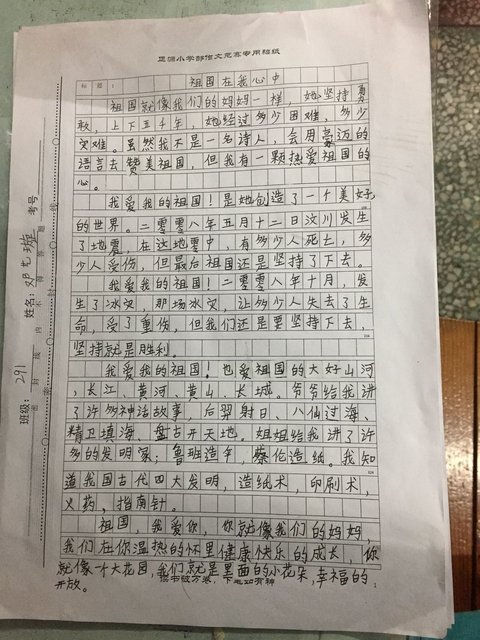 正源小学部作文竞赛专用稿纸
标题：
祖国在我心中
祖国就像我们的妈妈一样，她坚持勇
敢，上下五千年，她经过多少困难，多少
灾难。虽然我不是一名诗人，会用豪迈的
语言去赞美祖国，但我有一颗热爱祖国的
心。
我爱我的祖国！是她创造了一个美好
的世界。二零零八年五月十二日汶川发生
了地震，在这地震中，有多少人死亡，多
少人受伤，但最后祖国还是坚持了下去。
我爱我的祖国！二零零八年十月，发
生了冰灾，那场冰灾，让多少人失去了生
命，受了重伤，但我们还是要坚持下去，
坚持就是胜利。
我爱我的祖国！也爱祖国的大好山河
，长江、黄河、黄山、长城。爷爷给我讲
了许多神话故事，后羿射日、八仙过海、
精卫填海、盘古开天地。姐姐给我讲了许
多的发明家；鲁班造伞，蔡伦造纸。我知
道我国古代四大发明，造纸术，印刷术，
火药，指南针。
祖国，我爱你，你就像我们的妈妈，
我们在你温热的怀里健康快乐的成长，你
就像一个大花园，我们就是里面的小花朵，幸福的
开放。
读书破万卷，下笔如有神
班级：291
姓名：邓
考号
密 封 线 内 不 得 答 题